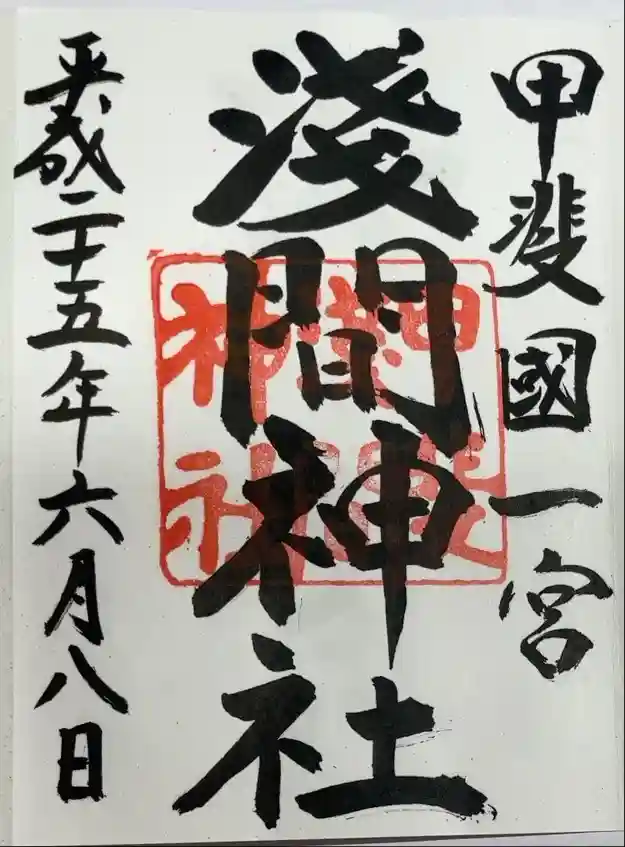 甲斐國一宮
淺間神社
平成二十五年六月八日